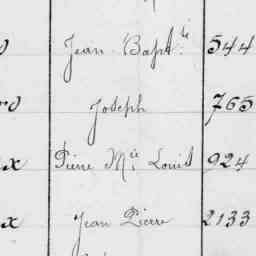 Jean Bapt.te 544
Joseph 765
Pierre M.ie Louis 924
x Jean Pierre 2133